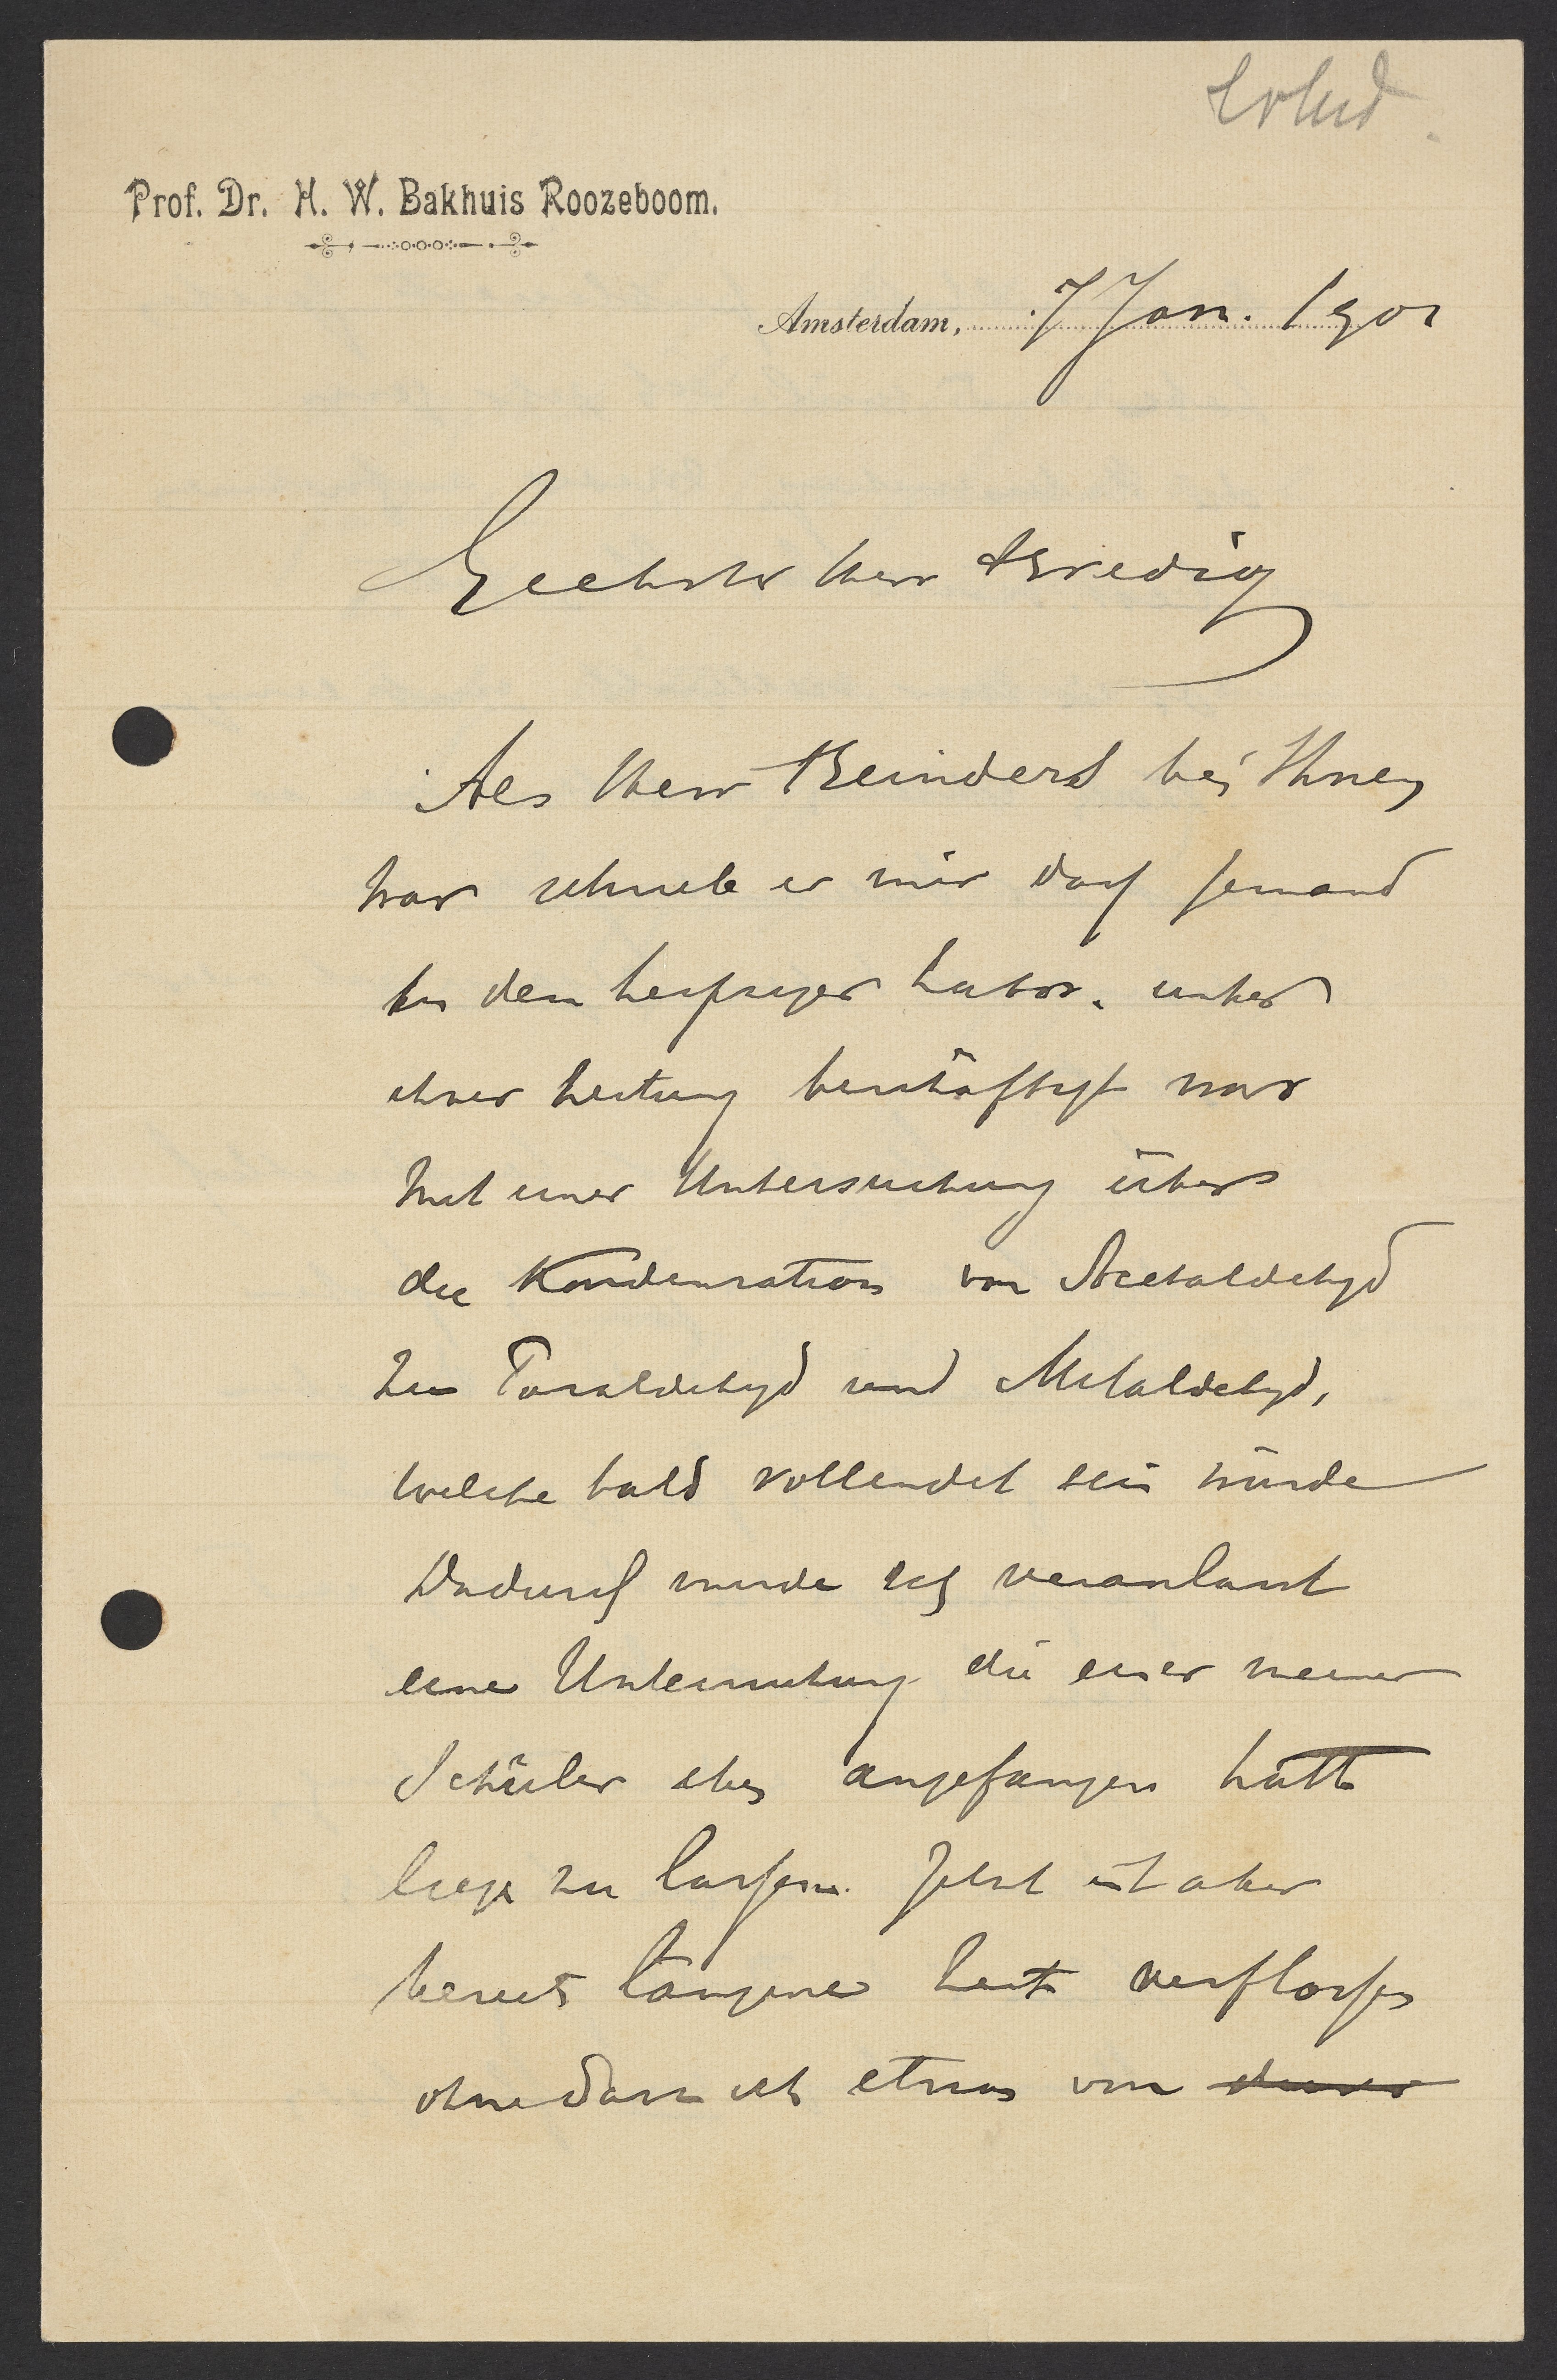 Erled.
Prof. Dr. H. W. Bakhuis Roozeboom.
Amsterdam, 7 Jan. 1901
Geehrter Herr Bredig
Als Herr Reinders bei Ihnen
war schrieb er mir dass jemand
in dem Leipziger Labor. unter
ihrer Leitung beschäftigt war
mit einer Untersuchung über
die Kondensation von Acetaldehyd
zu Paraldehyd und Metaldehyd,
welche bald vollendet sein würde
Dadurch wurde ich veranlasst
eine Untersuchung die einer meiner
Schüler eben angefangen hatte
liegen zu lassen. Jetzt ist aber
bereits längere Zeit verflossen
ohne dass ich etwas von dieser